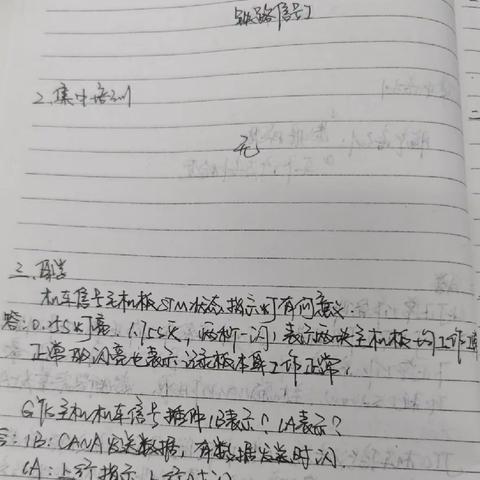 铁路信号工
2.集中培训
无
三、
机车信号主机板STM状态指示灯有何意义.
答:0.25S灯亮 1.75S灭, 两秒一闪, 表示两块主机板均工作
正常 的闪亮也表示 该板本身工作正常.
主机机车信号插件1B表示? 1A表示?
答:1B:CANA发送数据, 有数据发送时闪.
1A:上行指示 上行时闪